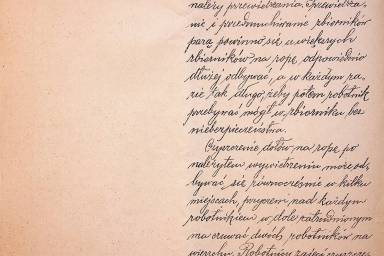 należy przewietrzania. Przewietrza-
nie i przedmuchiwanie zbiorników
parą powinno się u większych
zbiorników na ropę odpowiednio
dłużej odbywać, a w każdym ra-
zie tak długo, żeby potem robotnik
przebywać mógł w zbiorniku bez
niebezpieczeństwa.
Czyszczenie dołów na ropę, po
należytem wywietrzeniu może od-
bywać się równocześnie w kilku
miejscach, przyczem nad każdym
robotnikiem w dole zatrudnionym
ma czuwać dwóch robotników na
wierzchu. Robotnicy zajęci czyszcze-